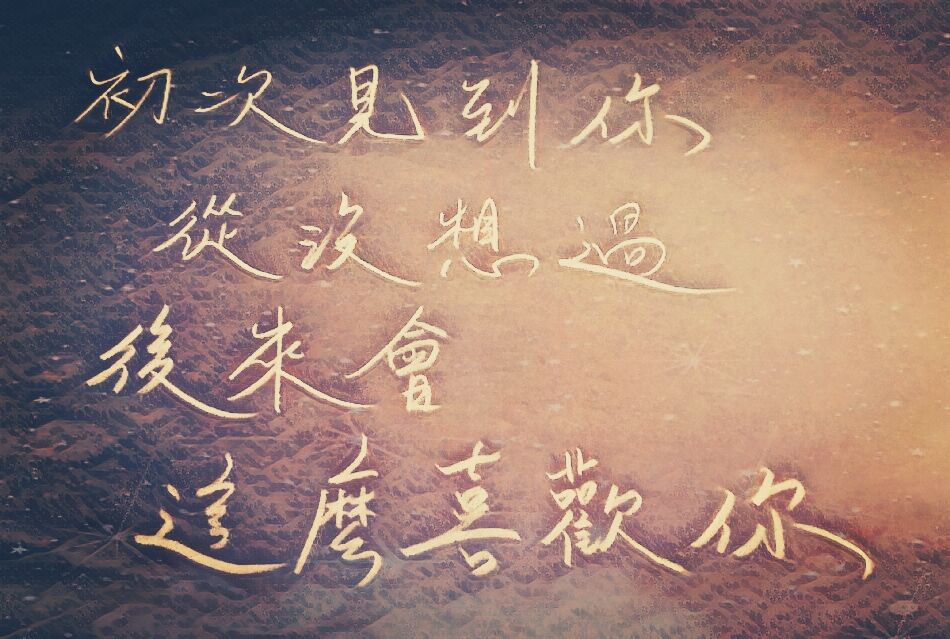 初次見到你
從沒想過
後來會
這麼喜歡你